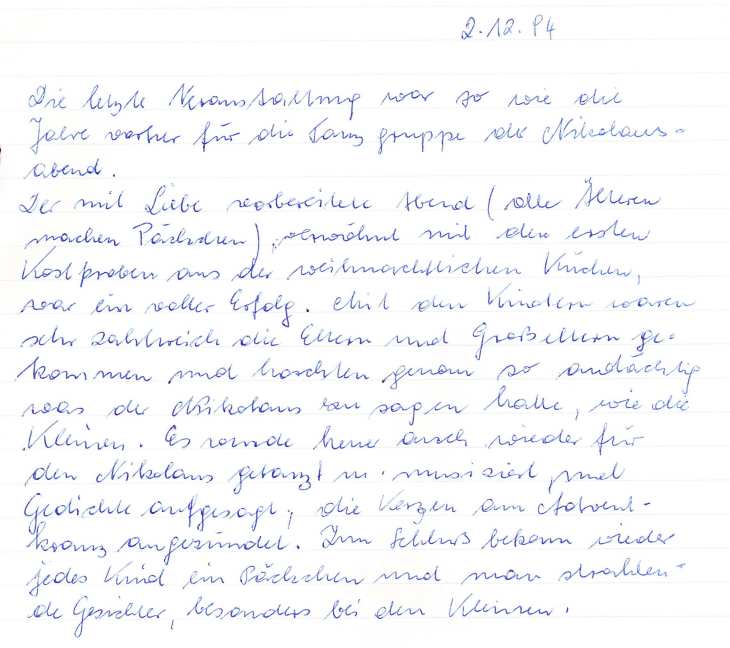 2.12.94
Die letzte Veranstaltung war so wie die
Jahre vorher für die Tanzgruppe der Nikolaus-
abend.
Der mit Liebe vorbereitete Abend (alle Älteren
machen Päckchen), verwöhnt mit den ersten
Kostproben aus der weihnachtlichen Küchen,
war ein voller Erfolg. Mit den Kindern waren
sehr zahlreich die Eltern und Großeltern ge-
kommen und horchten genau so andächtig
was der Nikolaus zu sagen hatte, wie die
Kleinen. Es wurde heuer auch wieder für
den Nikolaus getanzt u. musiziert, und
Gedichte aufgesagt, die Kerzen am Advent-
kranz angezündet. Zum Schluß bekam wieder
jedes Kind ein Päckchen und man strahlen-
de Gesichter, besonders bei den Kleinen.